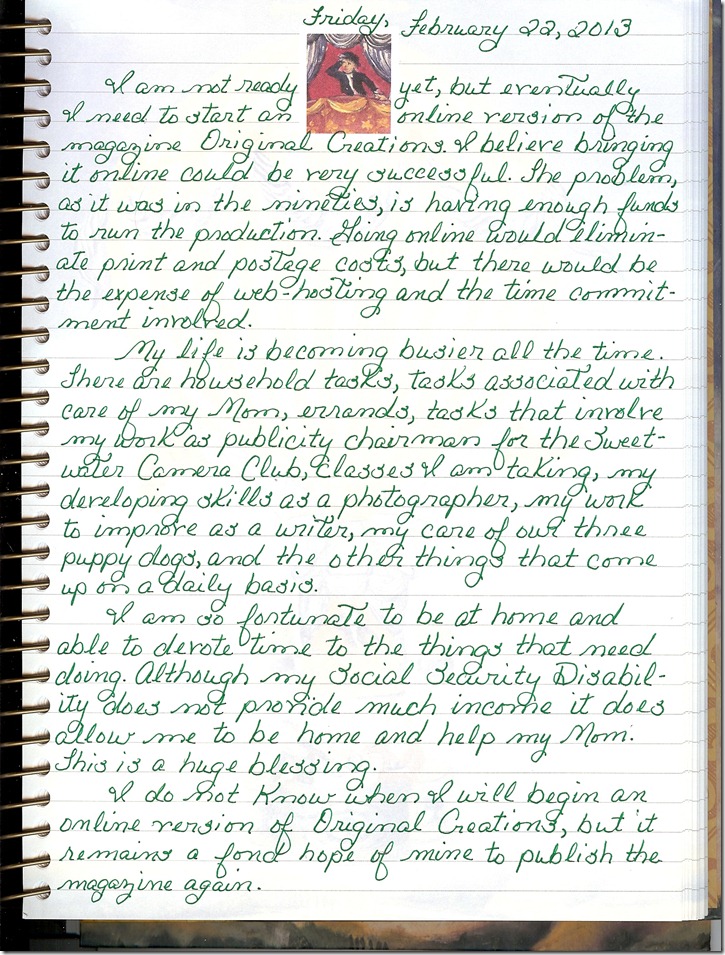 Friday, February 22, 2013
I am not ready yet, but eventually
I need to start an online version of the
magazine Original Creations. I believe bringing
it online could be very successful. The problem,
as it was in the nineties, is having enough funds
to run the production. Going online would elimin-
ate print and postage costs, but there would be
the expense of web-hosting and the time commit-
ment involved.
My life is becoming busier all the time.
There are household tasks, tasks associated with
care of my Mom, errands, tasks that involve
my work as publicity chairman for the Sweet-
water Camera Club, classes I am taking, my
developing skills as a photographer, my work
to improve as a writer, my care of our three
puppy dogs, and the other things that come
up on a daily basis.
I am so fortunate to be at home and
able to devote time to the things that need
doing. Although my Social Security Disabil-
ity does not provide much income it does
allow me to be home and help my Mom.
This is a huge blessing.
I do not know when I will begin an
online version of Original Creations, but it
remains a fond hope of mine to publish the
magazine again.